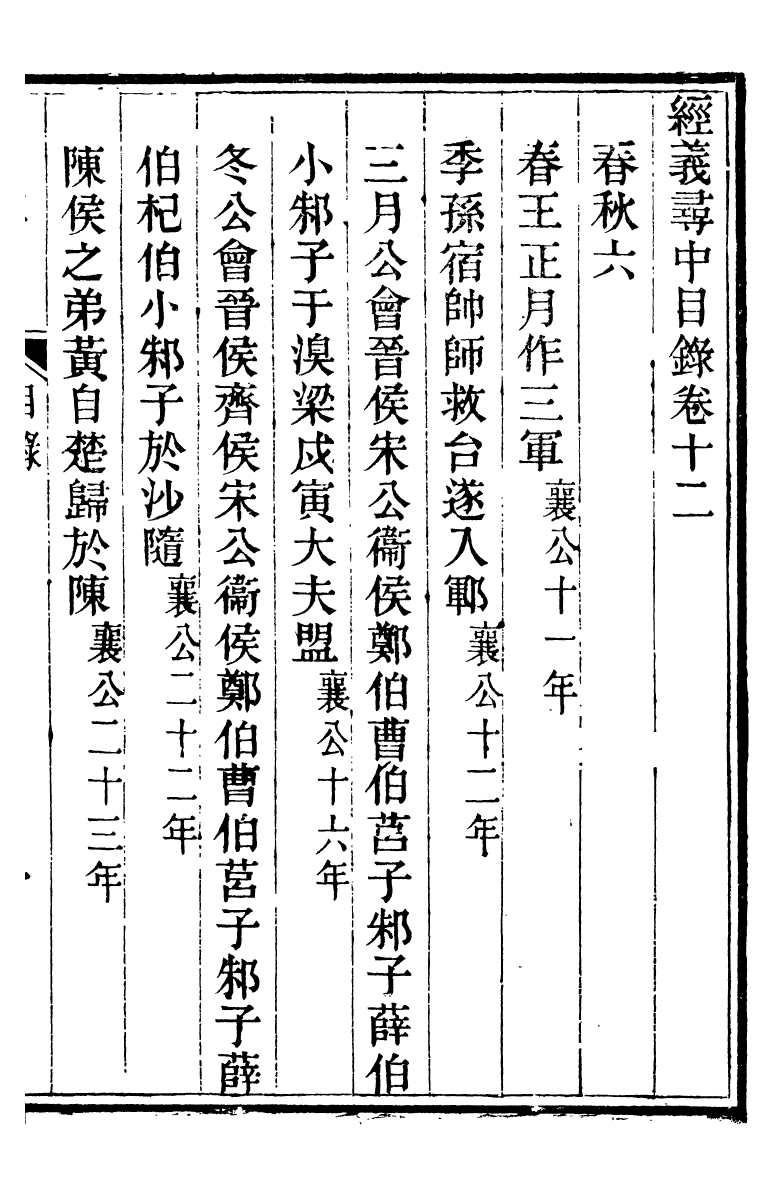 經義尋中目錄卷十二
春秋六
春王正月作三軍襄公十一年
季孫宿帥師救台遂入鄆襄公十二年
三月公會晉侯宋公衞侯鄭伯曹伯莒子邾子薛伯
小邾子于溴梁戊寅大夫盟襄公十六年
冬公會晉侯齊侯宋公衞侯鄭伯曹伯莒子邾子薛
伯杞伯小邾子於沙隨襄公二十二年
陳侯之弟黃自楚歸於陳襄公二十三年
目錄